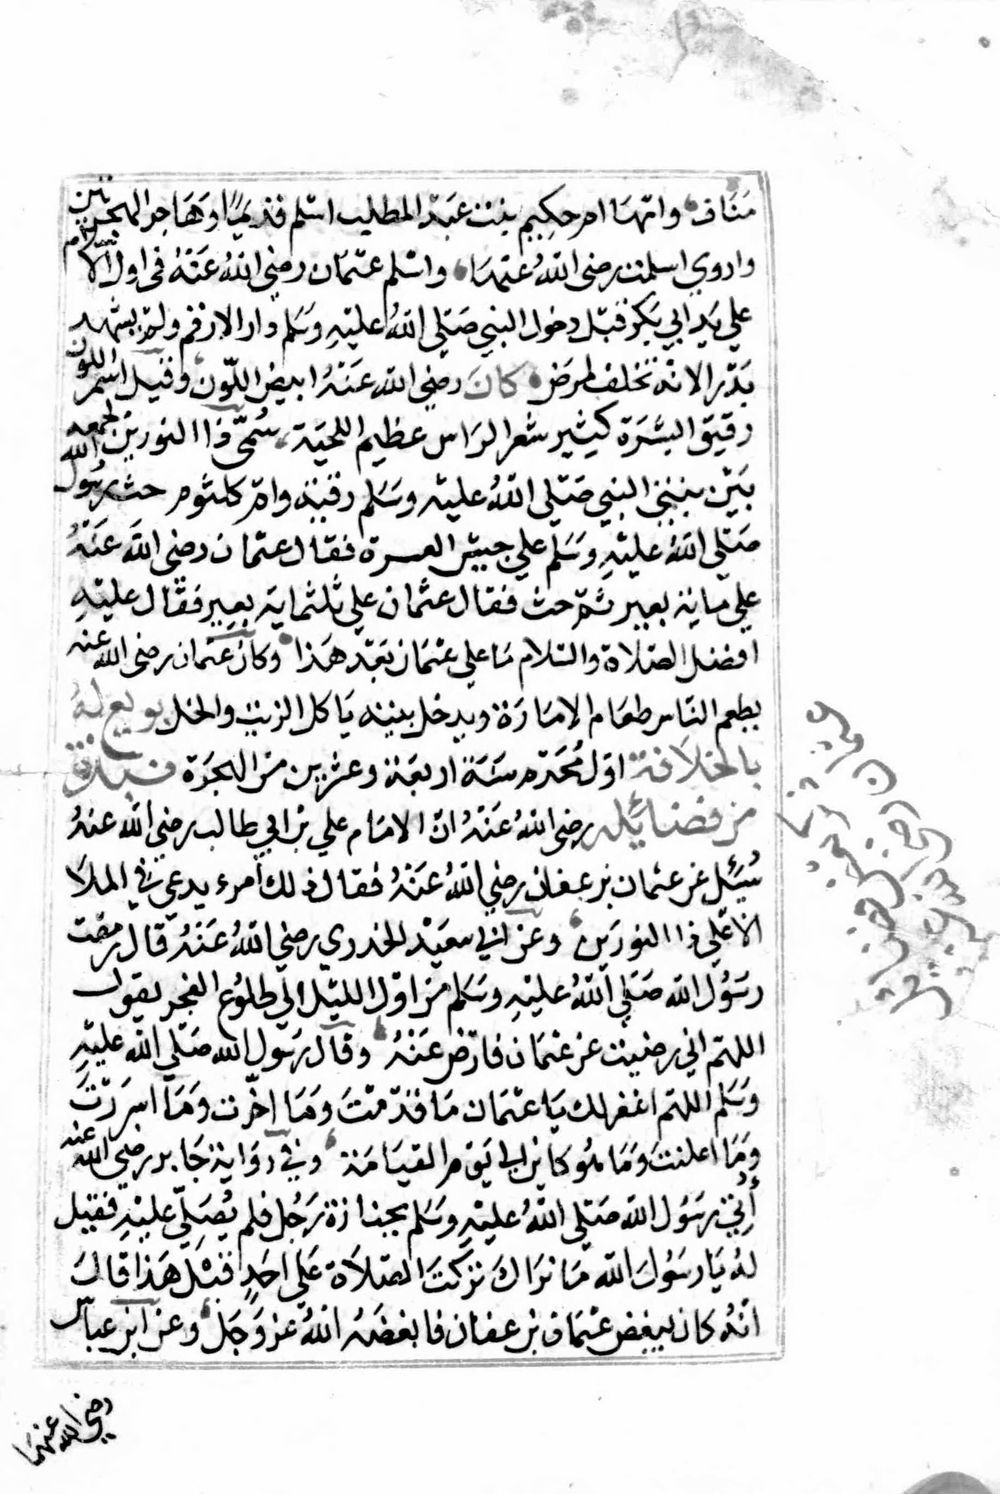 مناف وامها ام حكيم بنت عبد المطلب اسلم قديمًا وهاجر الهجرتين
واروي اسلمت رضي الله عنها واسلم عثمان رضي الله عنه في اول الاسلام
علي يد ابي بكر قبل دخول النبي صَلي اللهُ عليهِ وسَلم دار الارقم ولم يشهد
بدْر الا انه تخلف لمرض كانَ رضي الله عنهُ ابيض اللّون وقيل اسمر اللون
رقيق البشرة كثير شعر الراس عظيم اللحية سُمّي ذا النورين لجمعه
بَيْن بنتي النبي صَلي اللهُ عليه وسَلم رقية وام كلثوم حث رسُول الله
صَلي اللهُ عليْهِ وسَلم علي جيش العسرة فقال عثمان رضي الله عَنهُ
علي ماية بعير ثم حث فقال عثمان علي ثلثماية بعير فقال عليْهِ
افضل الصلاة والسلام مَا علي عثمان بَعْد هَذا وكان عثمان رضي الله عنه
يطعم الناس طعام الامارَة ويدخل بيته يَاكل الزيت والخل بويع لهُ
بالخلافة اول مُحَرم سَنَة اربعَة وعشرين من الهجرَة نبذة
من فضائله رضي اللهُ عَنهُ انّ الامَام علي بن ابي طالب رضي الله عنهُ
سُئل عن عثمان بن عفان رضي اللهُ عَنهُ فقال ذلك امرء يدعي في الملا
الاعْلي ذا النورَين وعن ابي سعيْد الخدري رضي اللهُ عَنهُ قال رمقت
رسُول الله صَلي اللهُ عليْهِ وسَلم من اول الليْل الي طلوُع الفجر يقول
اللهم اني رضيت عن عثمان فارْض عَنهُ وقال رسُول الله صَلي الله عليْهِ
وسَلم اللهم اغفر لك يَا عثمان مَا قدّمْتَ ومَا اخّرت ومَا اسرَرْتَ
ومَا اعلنتَ ومَا هُو كاين الي يَوْم القيَامَة وفي روَاية جَابر رضي الله عنه
أُتِيَ رسُول الله صَلي اللهُ عليْهِ وسَلم بجنازة رَجُل فلم يُصَلّي عليْهِ فقيْل
لهُ يَا رسُولَ الله مَا نرَاكَ تركتَ الصّلاَة عَلي احَدٍ قبْل هَذا قالَ
انّهُ كان يبغض عثمان بن عفان فابغضَهُ اللهُ عز وَجَل وعن ابن عباس
رضي الله عنهما